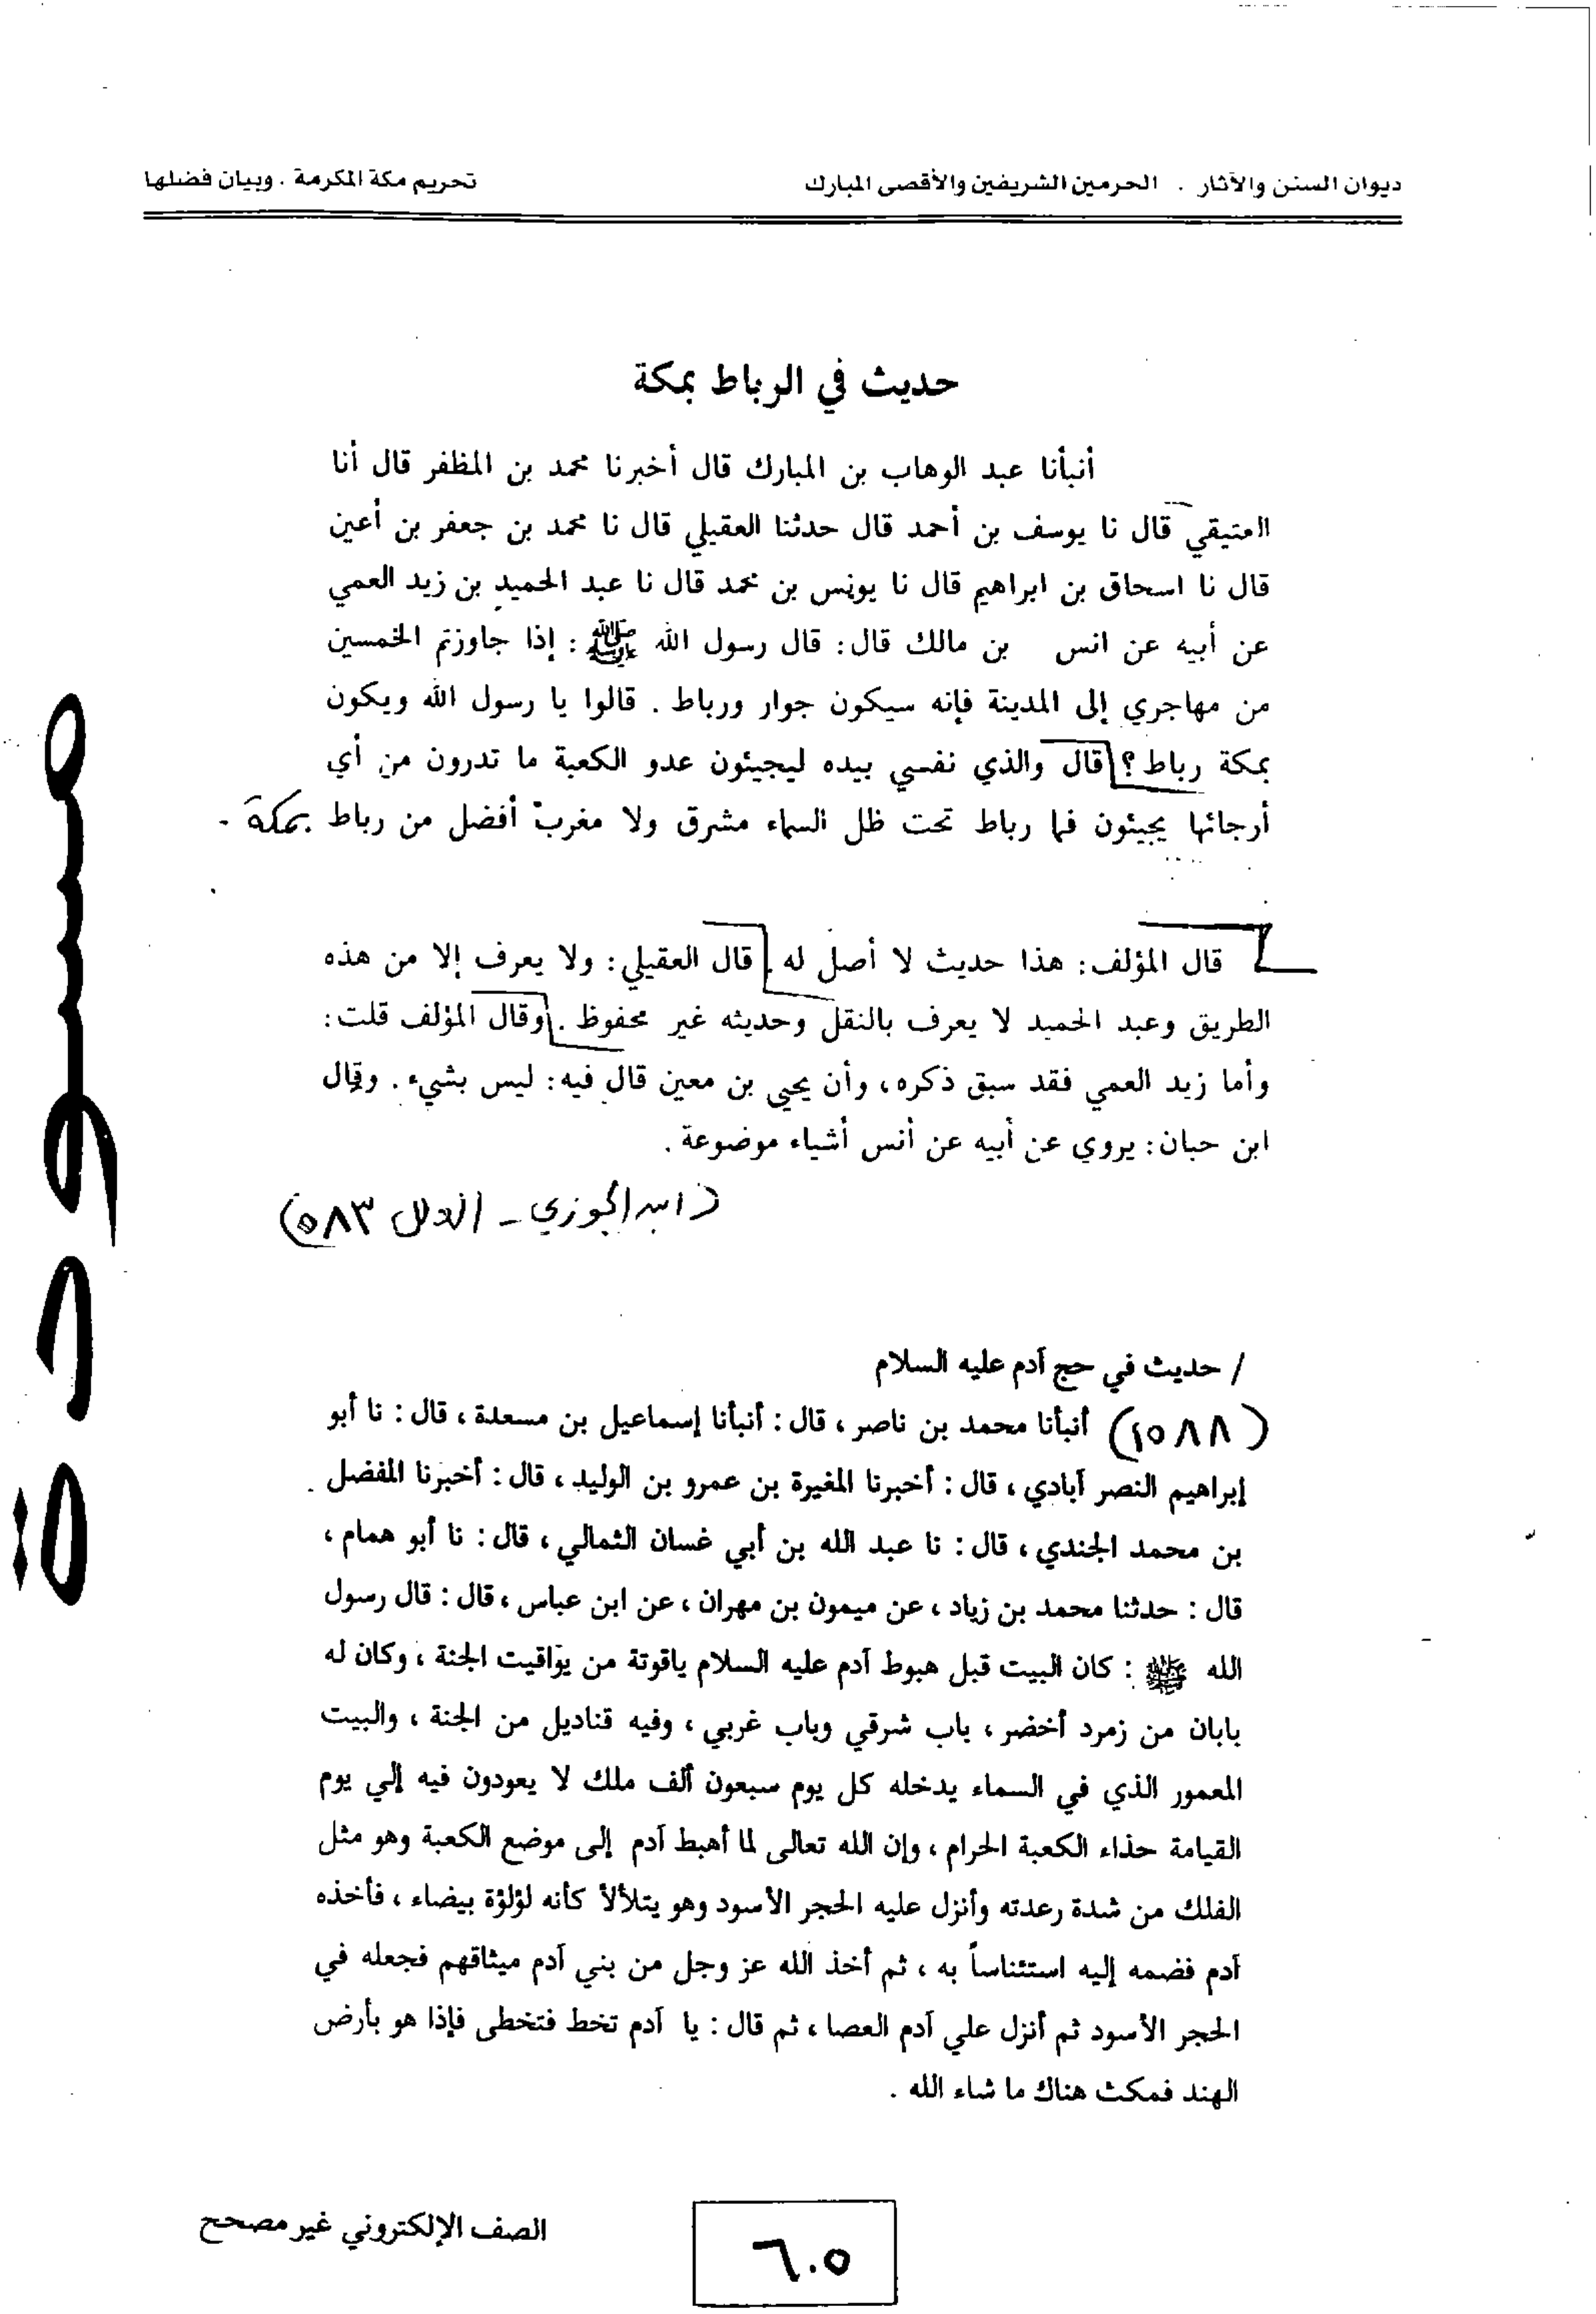 ديوان السنن والآثار . الحرمين الشريفين والأقصى المبارك
تحريم مكة المكرمة . وبيان فضلها
حديث في الرباط بمكة
أنبأنا عبد الوهاب بن المبارك قال أخبرنا محمد بن المظفر قال أنا
العتيقي قال نا يوسف بن أحمد قال حدثنا العقيلي قال نا محمد بن جعفر بن أعين
قال نا اسحاق بن ابراهيم قال نا يونس بن محمد قال نا عبد الحميد بن زيد العمي
عن أبيه عن انس بن مالك قال: قال رسول الله ﷺ : إذا جاوزتم الخمسين
من مهاجري إلى المدينة فإنه سيكون جوار ورباط . قالوا يا رسول الله ويكون
بمكة رباط؟ قال والذي نفسي بيده ليجيئون عدو الكعبة ما تدرون من أي
أرجائها يجيئون فما رباط تحت ظل السماء مشرق ولا مغرب أفضل من رباط بمكة .
قال المؤلف: هذا حديث لا أصل له . قال العقيلي: ولا يعرف إلا من هذه
الطريق وعبد الحميد لا يعرف بالنقل وحديثه غير محفوظ . وقال المؤلف قلت:
وأما زيد العمي فقد سبق ذكره، وأن يحيى بن معين قال فيه: ليس بشيء . وقال
ابن حبان: يروي عن أبيه عن أنس أشياء موضوعة .
(ابن الجوزي - العلل ٥٨٣)
/ حديث في حج آدم عليه السلام
(١٥٨٨) أنبأنا محمد بن ناصر ، قال : أنبأنا إسماعيل بن مسعدة ، قال : نا أبو
إبراهيم النصر آبادي ، قال : أخبرنا المغيرة بن عمرو بن الوليد ، قال : أخبرنا المفضل
بن محمد الجندي ، قال : نا عبد الله بن أبي غسان الثمالي ، قال : نا أبو همام ،
قال : حدثنا محمد بن زياد ، عن ميمون بن مهران ، عن ابن عباس ، قال : قال رسول
الله ﷺ : كان البيت قبل هبوط آدم عليه السلام ياقوتة من يواقيت الجنة ، وكان له
بابان من زمرد أخضر ، باب شرقي وباب غربي ، وفيه قناديل من الجنة ، والبيت
المعمور الذي في السماء يدخله كل يوم سبعون ألف ملك لا يعودون فيه إلي يوم
القيامة حذاء الكعبة الحرام ، وإن الله تعالى لما أهبط آدم إلى موضع الكعبة وهو مثل
الفلك من شدة رعدته وأنزل عليه الحجر الأسود وهو يتلألأ كأنه لؤلؤة بيضاء ، فأخذه
آدم فضمه إليه استئناساً به ، ثم أخذ الله عز وجل من بني آدم ميثاقهم فجعله في
الحجر الأسود ثم أنزل علي آدم العصا ، ثم قال : يا آدم تخط فتخطى فإذا هو بأرض
الهند فمكث هناك ما شاء الله .
مسودة
الصف الإلكتروني غير مصحح
٦٠٥